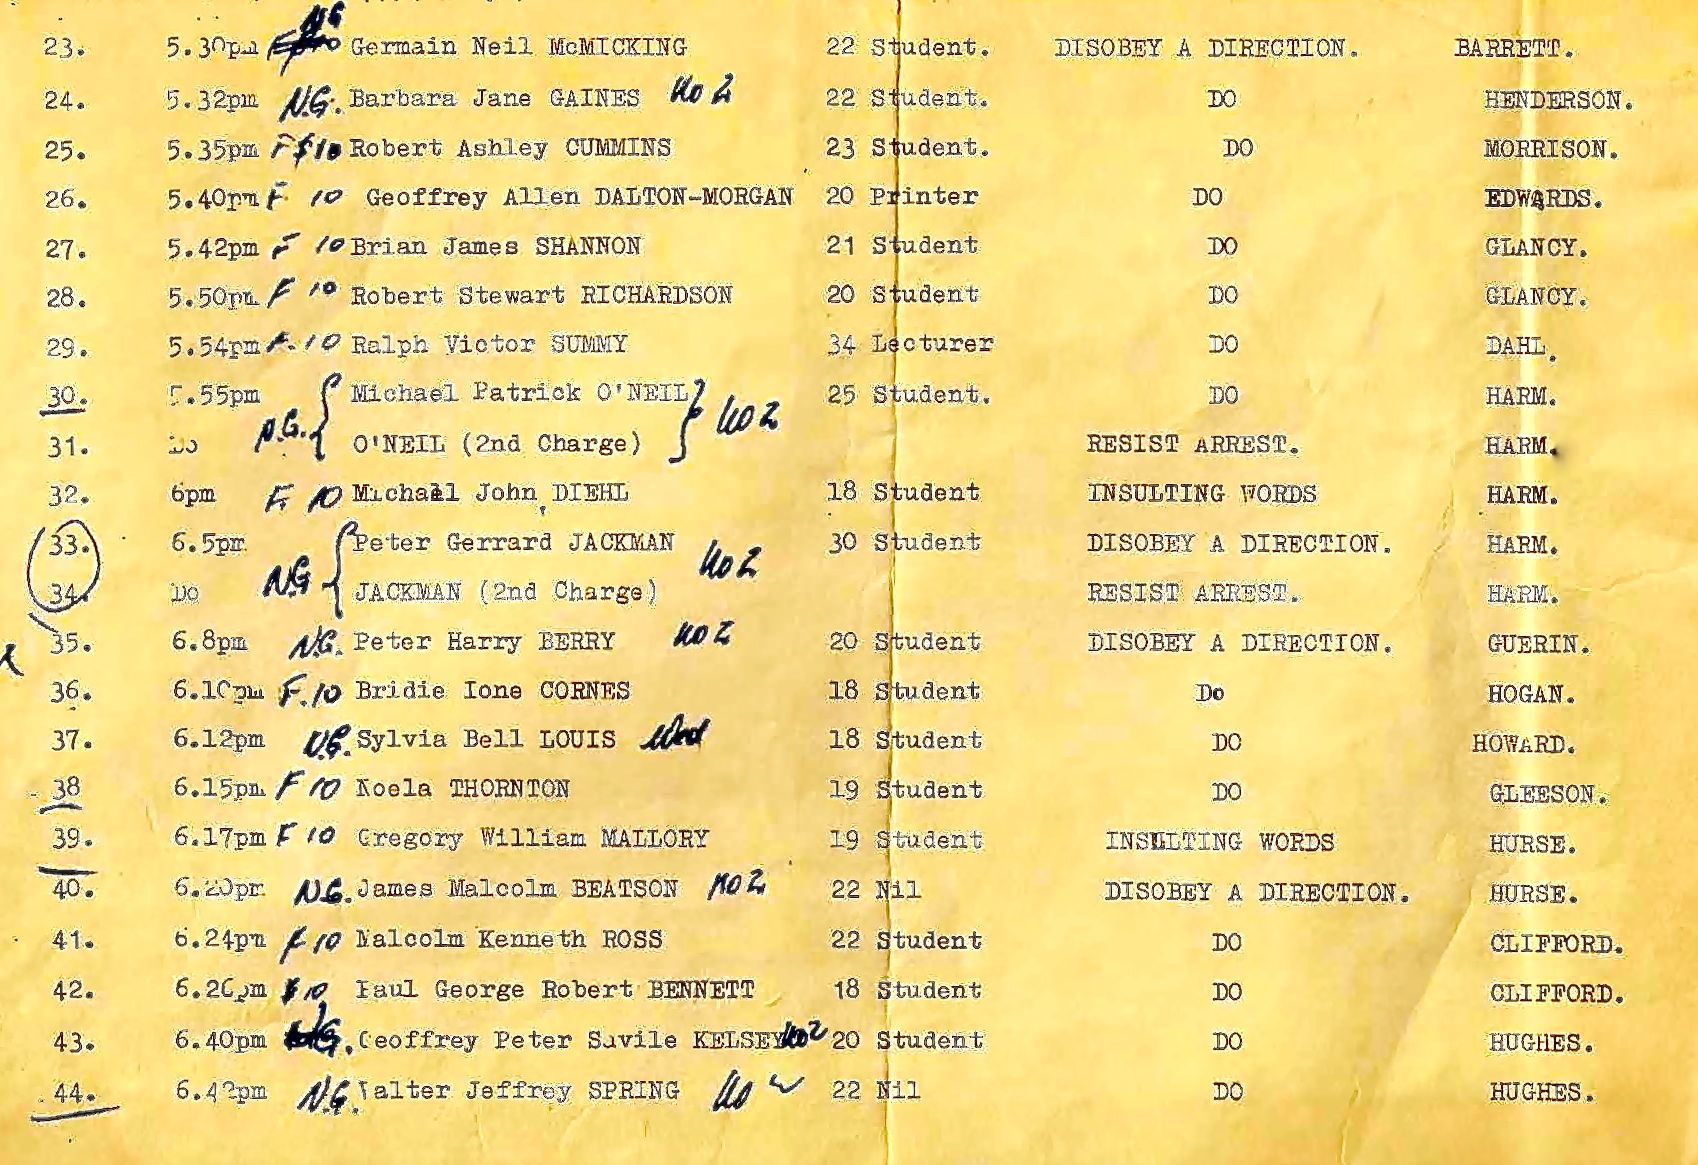 N.G
23. 5.30pm Germain Neil McMICKING 22 Student. DISOBEY A DIRECTION. BARRETT.
24. 5.32pm N.G. Barbara Jane GAINES 22 Student. DO HENDERSON.
25. 5.35pm F $10 Robert Ashley CUMMINS 23 Student. DO MORRISON.
26. 5.40pm F 10 Geoffrey Allen DALTON-MORGAN 20 Printer DO EDWARDS.
27. 5.42pm F 10 Brian James SHANNON 21 Student DO GLANCY.
28. 5.50pm F 10 Robert Stewart RICHARDSON 20 Student DO GLANCY.
29. 5.54pm F. 10 Ralph Victor SUMMY 34 Lecturer DO DAHL.
30. 5.55pm Michael Patrick O'NEIL 25 Student. DO HARM.
31. DO N.G. O'NEIL (2nd Charge) RESIST ARREST. HARM.
32. 6pm F. 10 Michaell John DIEHL 18 Student INSULTING WORDS HARM.
33. 6.5pm Peter Gerrard JACKMAN 30 Student DISOBEY A DIRECTION. HARM.
34. DO N.G JACKMAN (2nd Charge) RESIST ARREST. HARM.
35. 6.8pm N.G. Peter Harry BERRY 20 Student DISOBEY A DIRECTION. GUERIN.
36. 6.10pm F.10 Bridie Ione CORNES 18 Student Do HOGAN.
37. 6.12pm N.G. Sylvia Bell LOUIS 18 Student DO HOWARD.
38 6.15pm F 10 Noela THORNTON 19 Student DO GLEESON.
39. 6.17pm F 10 Gregory William MALLORY 19 Student INSULTING WORDS HURSE.
40. 6.20pm N.G. James Malcolm BEATSON 22 Nil DISOBEY A DIRECTION. HURSE.
41. 6.24pm F 10 Malcolm Kenneth ROSS 22 Student DO CLIFFORD.
42. 6.26pm F 10 Paul George Robert BENNETT 18 Student DO CLIFFORD.
43. 6.40pm N.G. Geoffrey Peter Savile KELSEY 20 Student DO HUGHES.
44. 6.42pm N.G. Walter Jeffrey SPRING 22 Nil DO HUGHES.